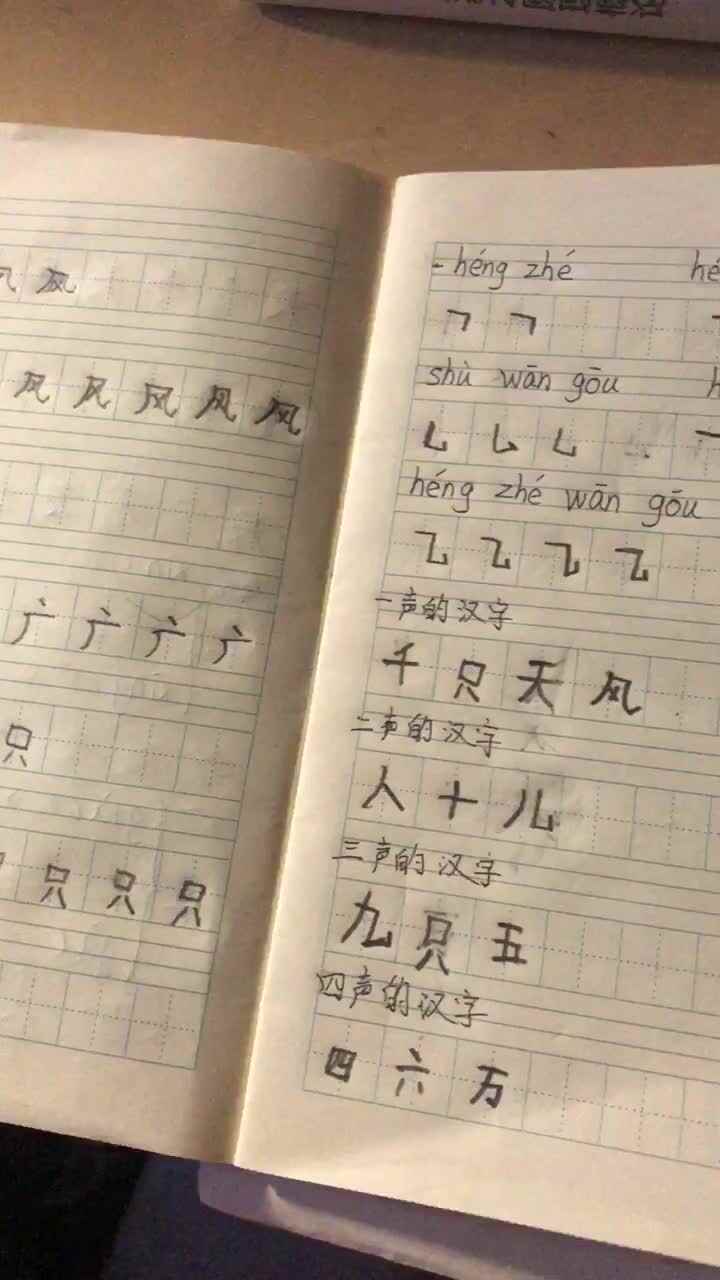 风 风
风 风 风 风 风
广 广 广 广
只
只 只 只
héng zhé hé
㇕ ㇕
shù wān gōu h
乚 乚 乚
héng zhé wān gōu
⺄ ⺄ ⺄ ⺄
一声的汉字
千 只 天 风
二声的汉字
人 十 儿
三声的汉字
九 只 五
四声的汉字
四 六 万